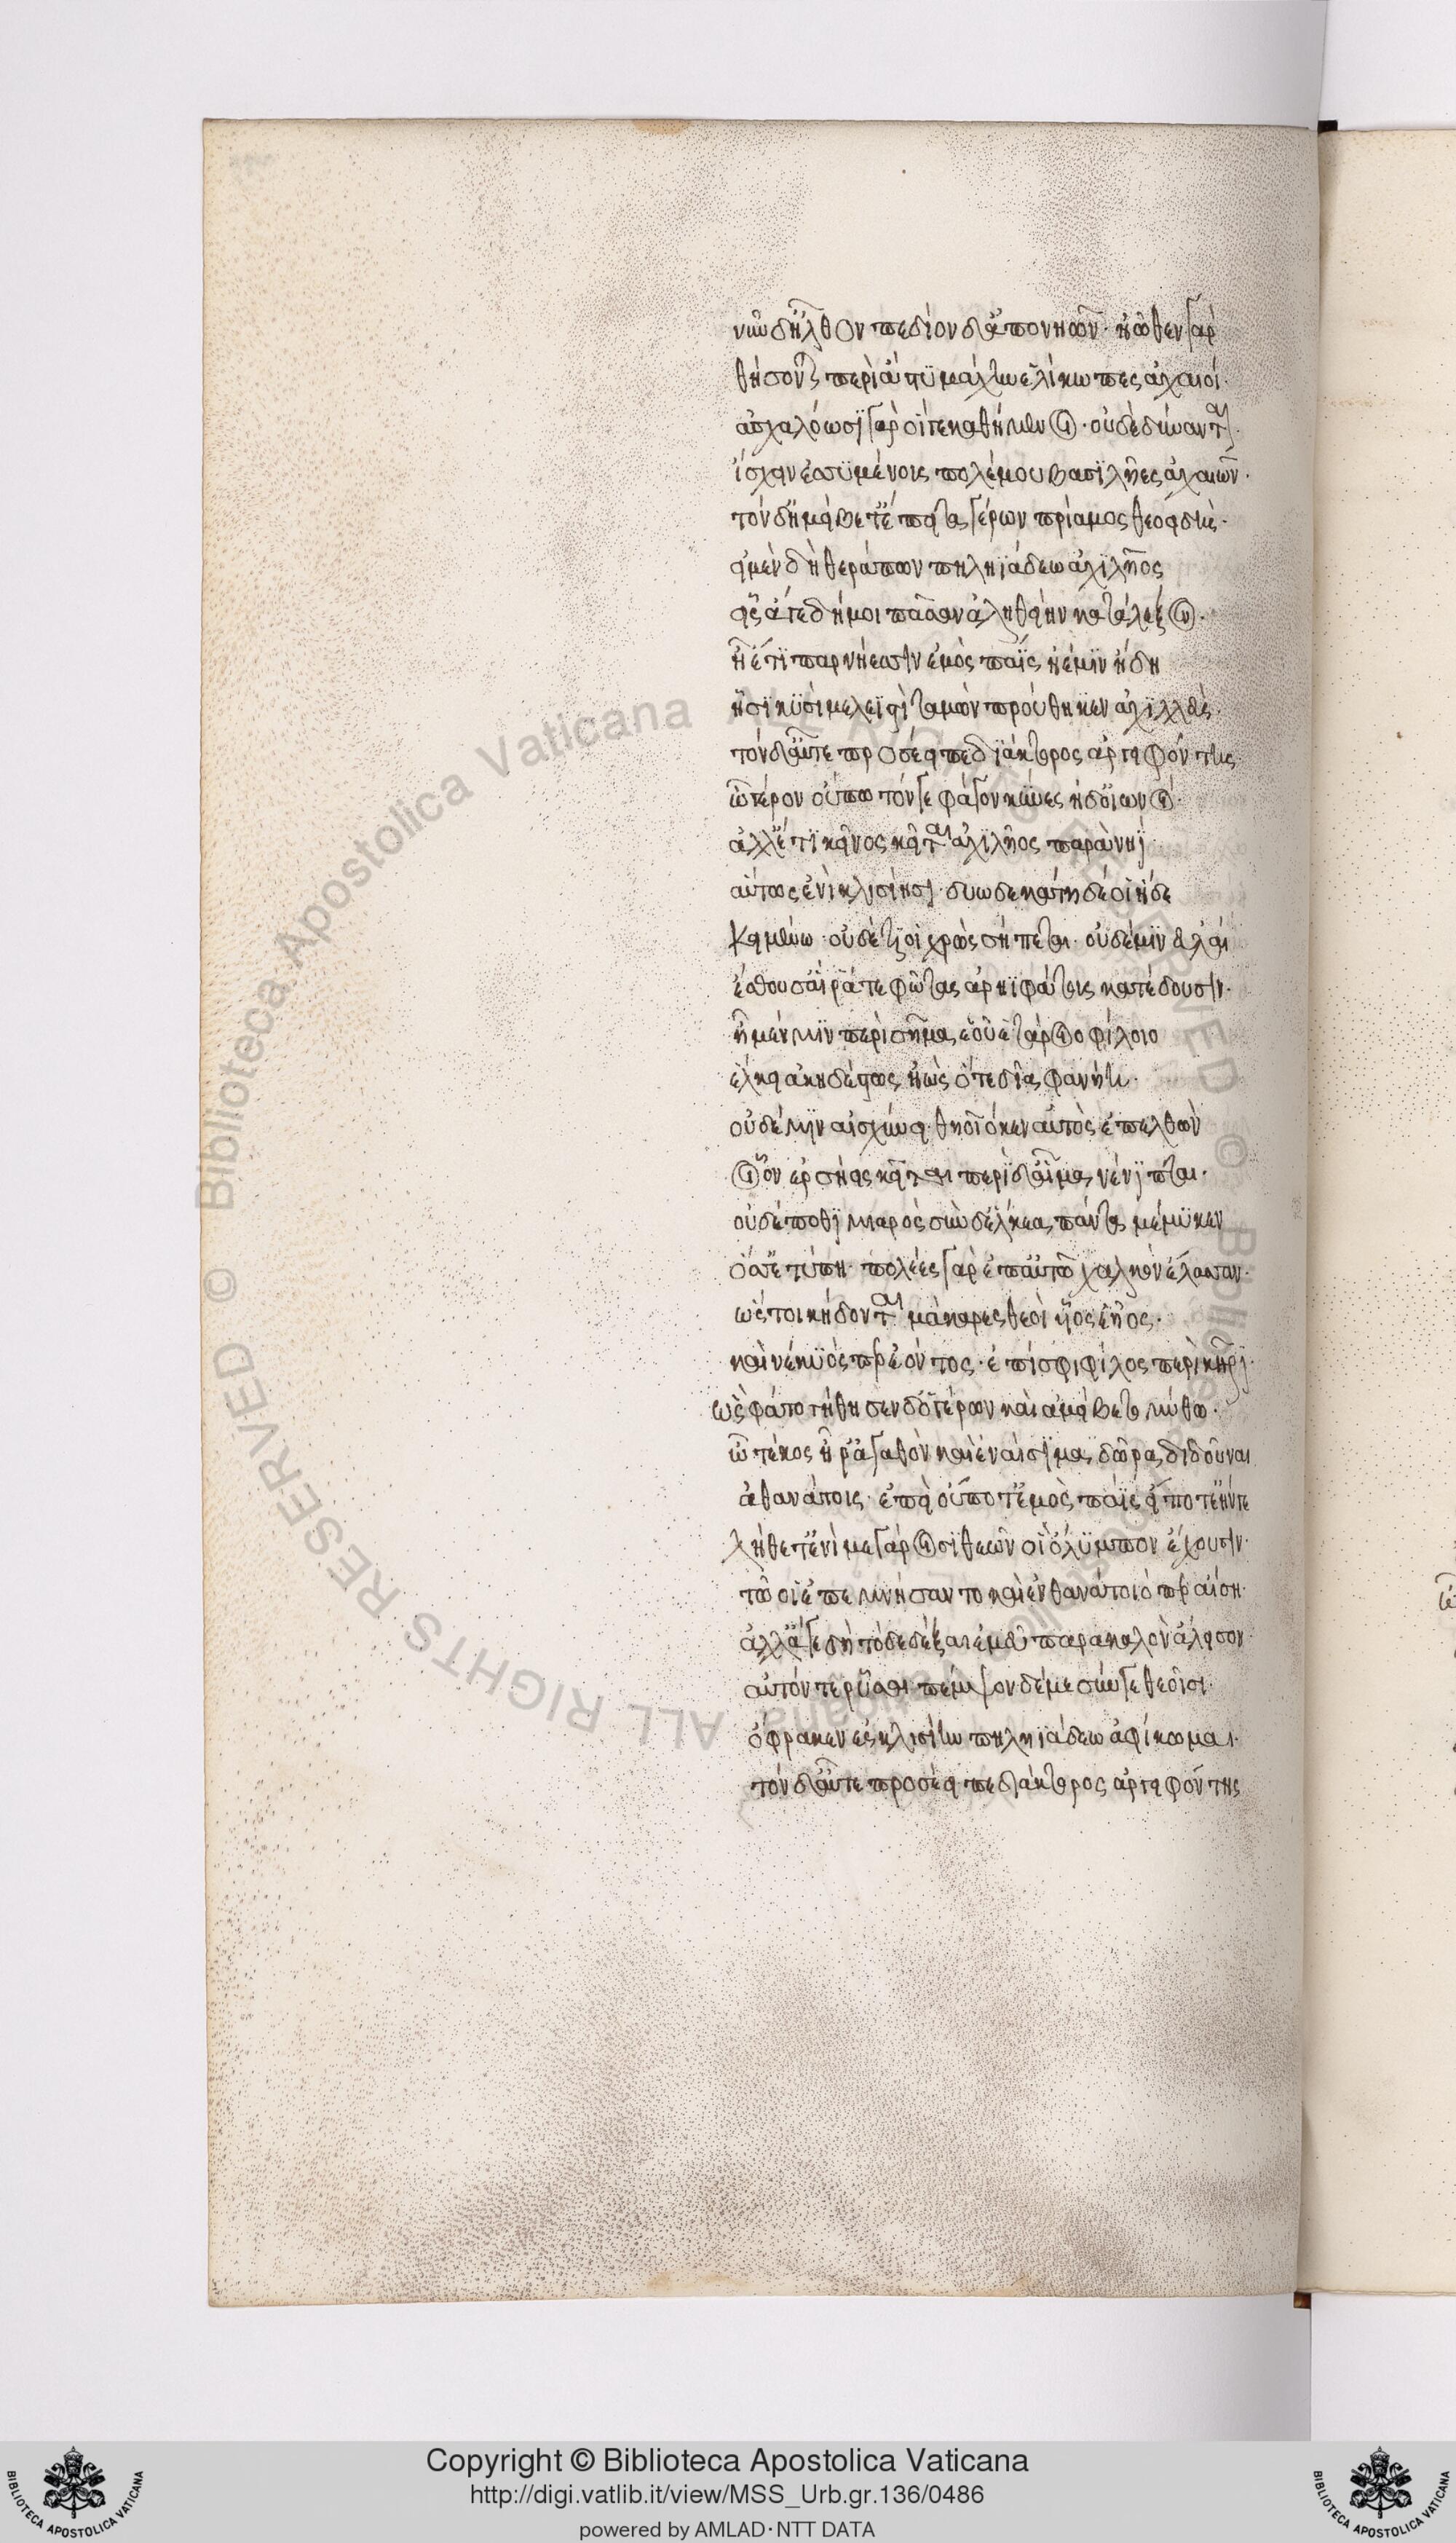 νῦν δ' ἦλθον πεδίον δ' ἀπὸ νηῶν· ἠῶθεν γὰρ
θήσονται περὶ ἄστυ μάχην ἑλίκωπες ἀχαιοί.
ἀσχαλόωσι γὰρ οἵγε καθήμενοι· οὐδὲ δύνανται.
ἴσχειν ἐσσυμένους πολέμου βασιλῆες ἀχαιῶν.
τὸν δ' ἠμείβετ' ἔπειτα γέρων πρίαμος θεοειδής.
εἰ μὲν δὴ θεράπων πηληϊάδεω ἀχιλῆος
εἶς ἄγε δή μοι πᾶσαν ἀληθείην κατάλεξον.
ἢ ἔτι παρ νήεσσιν ἐμὸς πάϊς ἠέ μιν ἤδη
ᾗσι κυσὶ μελεϊστὶ ταμὼν προύθηκεν ἀχιλλεύς.
τὸν δ' αὖτε προσέειπε διάκτορος ἀργειφόντης
ὦ γέρον οὔπω τόν γε φάγον κύνες ἠδ' οἰωνοί.
ἀλλ' ἔτι κεῖνος κεῖται ἀχιλῆος παρὰ νηῒ
αὔτως ἐνὶ κλισίῃσι· δυωδεκάτη δέ οἱ ἥδε
κειμένω· οὐδέ τι οἱ χρὼς σήπεται· οὐδέ μιν εὐλαὶ
ἔσθουσ' αἵ ῥά τε φῶτας ἀρηϊφάτους κατέδουσιν.
ἦ μέν μιν περὶ σῆμα ἑοῦ ἑτάροιο φίλοιο
ἕλκει ἀκηδέστως ἠὼς ὅτε δῖα φανήῃ.
οὐδέ μιν αἰσχύνει· θηοῖό κεν αὐτὸς ἐπελθὼν
οἷον ἐερσήεις κεῖται περὶ δ' αἷμα νένιπται.
οὐδέ ποθι μιαρὸς σὺν δ' ἕλκεα πάντα μέμυκεν
ὅσσ' ἐτύπη· πολέες γὰρ ἐπ' αὐτῶ χαλκὸν ἔλασσαν.
ὥς τοι κήδονται μάκαρες θεοὶ υἷος ἑῆος.
καὶ νέκυός περ ἐόντος· ἐπί σφι φίλος περὶ κῆρι.
ὣς φάτο γήθησεν δ' ὁ γέρων καὶ ἀμείβετο μύθω.
ὦ τέκος ἦ ῥ' ἀγαθὸν καὶ ἐναίσιμα δῶρα διδοῦναι
ἀθανάτοις· ἐπεὶ οὔποτ' ἐμὸς πάϊς εἴ ποτ' ἔην γε
λήθετ' ἐνὶ μεγάροισι θεῶν οἳ ὄλυμπον ἔχουσιν.
τῶ οἱ ἐπεμνήσαντο καὶ ἐν θανάτοιό περ αἴση.
ἀλλ' ἄγε δὴ τόδε δέξαι ἐμεῦ παρὰ καλὸν ἄλεισον.
αὐτόν τε ῥῦσαι πέμψον δέ με σύν γε θεοῖσι.
ὄφρα κεν ἐς κλισίην πηληϊάδεω ἀφίκωμαι.
τὸν δ' αὖτε προσέειπε διάκτορος ἀργειφόντης
Copyright © Biblioteca Apostolica Vaticana
http://digi.vatlib.it/view/MSS_Urb.gr.136/0486
powered by AMLAD·NTT DATA